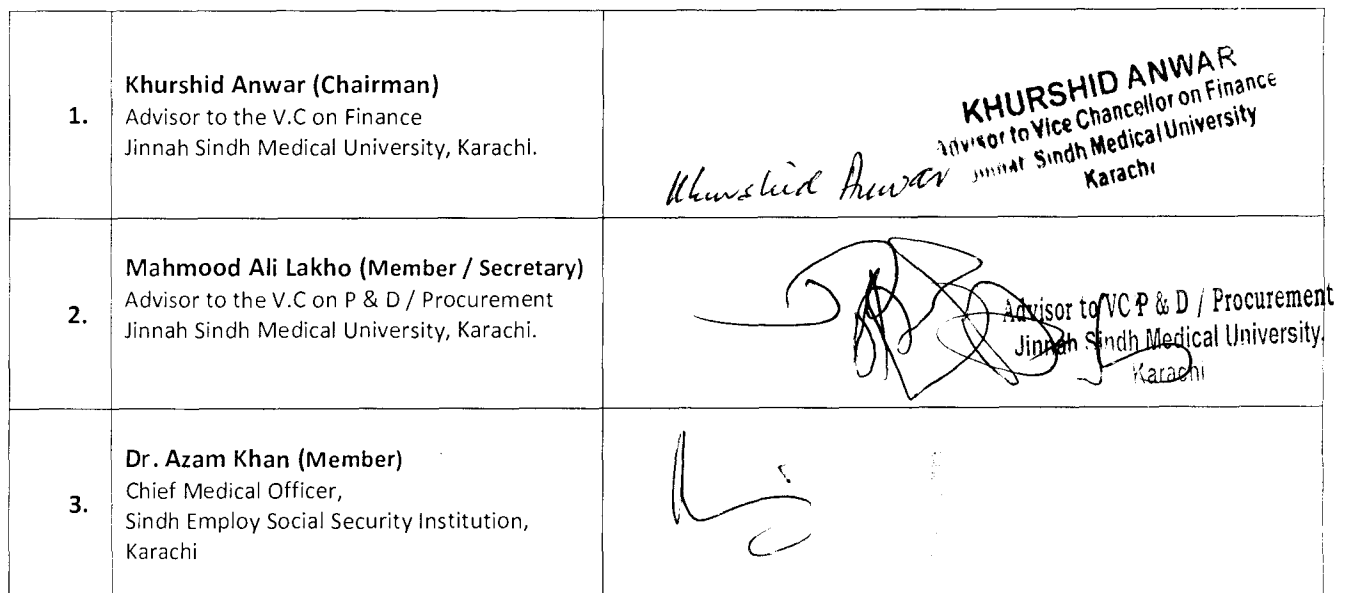 1.
Khurshid Anwar (Chairman)
Advisor to the V.C on Finance
Jinnah Sindh Medical University, Karachi.
Khurshid Anwar
KHURSHID ANWAR
Advisor to Vice Chancellor on Finance
Jinnah Sindh Medical University
Karachi
2.
Mahmood Ali Lakho (Member / Secretary)
Advisor to the V.C on P & D / Procurement
Jinnah Sindh Medical University, Karachi.
Advisor to VC P & D / Procurement
Jinnah Sindh Medical University,
Karachi
3.
Dr. Azam Khan (Member)
Chief Medical Officer,
Sindh Employ Social Security Institution,
Karachi